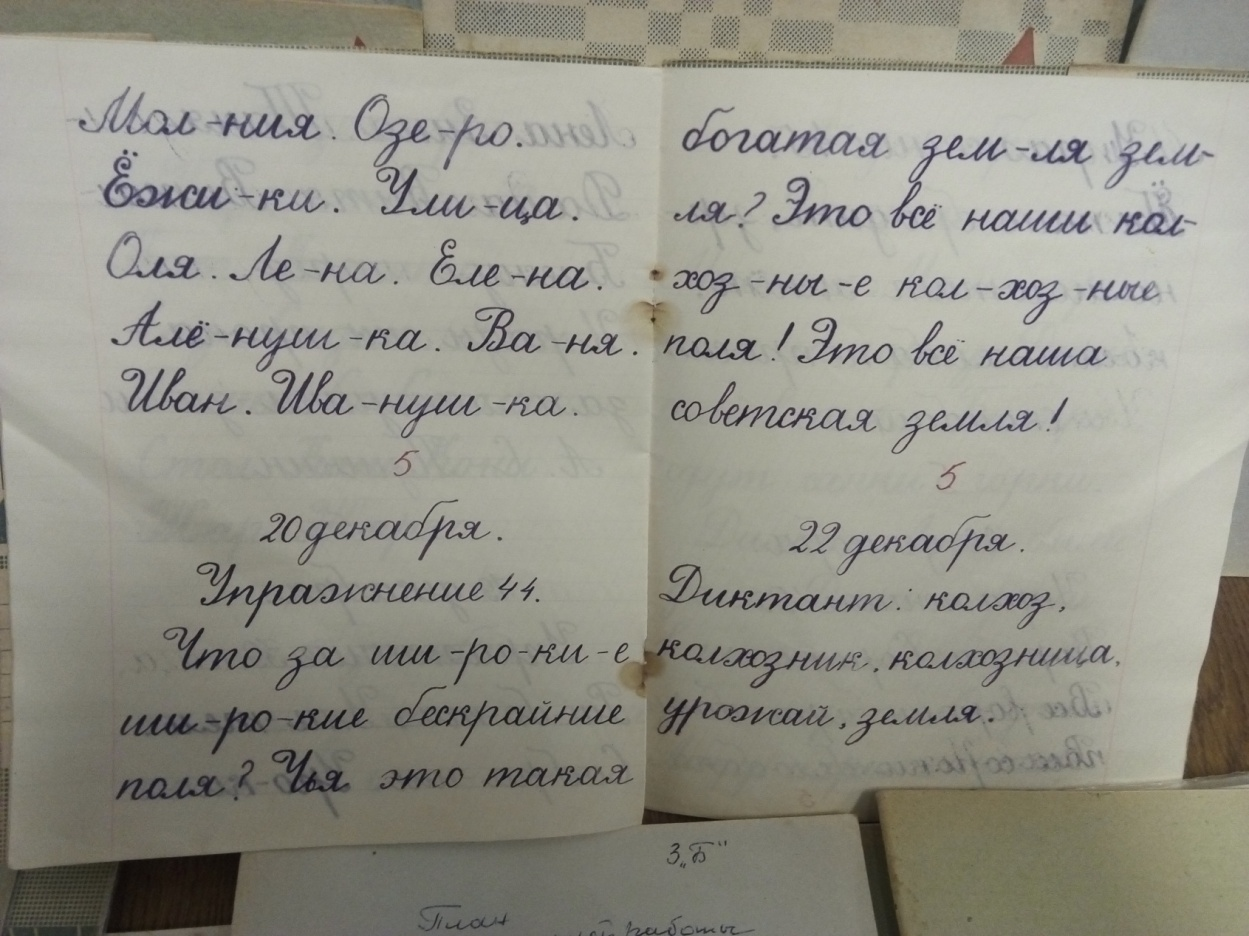 Мол-ния. Озе-ро.
Ёжи-ки. Ули-ца.
Оля. Ле-на. Еле-на.
Алё-нуш-ка. Ва-ня.
Иван. Ива-нуш-ка.
5
20 декабря.
Упражнение 44.
Что за ши-ро-ки-е
ши-ро-кие бескрайние
поля? Чья это такая
богатая зем-ля зем-
ля? Это всё наши кол-
хоз-ны-е кол-хоз-ные
поля! Это всё наша
советская земля!
5
22 декабря.
Диктант: колхоз,
колхозник, колхозница,
урожай, земля.
3 „Б"
План
работы